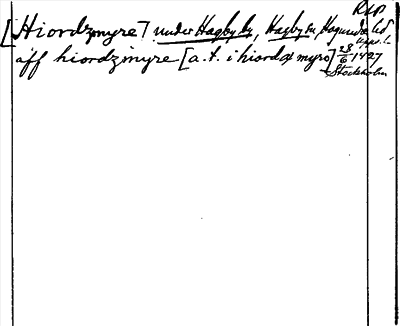 RAP
[Hiordzmyre] under Hagby by, Hagby sn, Hagunda hd
Uppl.
aff hiordzmyre [a.t. i hiordz myro] 28/6 1427
Stockholm